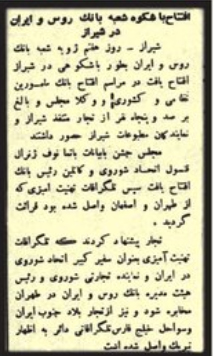 افتتاح با شکوه شعبه بانك روس و ایران
در شیراز
شیراز - روز هفتم ژویه شعبه بانك
روس و ایران بطور باشکوهی در شیراز
افتتاح یافت در مراسم افتتاح بانك مامورین
نظامی و کشوری و وکلا مجلس و بالغ
بر صد و پنجاه نفر از تجار متنفذ شیراز و
نمایندگان مطبوعات شیراز حضور داشتند
مجلس جشن بابیانات باتمانوف ژنرال
قنسول اتحاد شوروی و کاتلین رئیس بانك
افتتاح یافت سپس تلگرافات تهنیت آمیزی که
از طهران و اصفهان واصل شده بود قرائت
گردید .
تجار پیشنهاد کردند که تلگرافات
تهنیت آمیزی بعنوان سفیر کبیر اتحاد شوروی
در ایران و نماینده تجارتی شوروی و رئیس
هیئت مدیره بانك روس و ایران در طهران
مخابره شود و نیز از تجار بلاد جنوب ایران
وسواحل خلیج فارس تلگرافاتی دائر به اظهار
تبریك واصل شده است